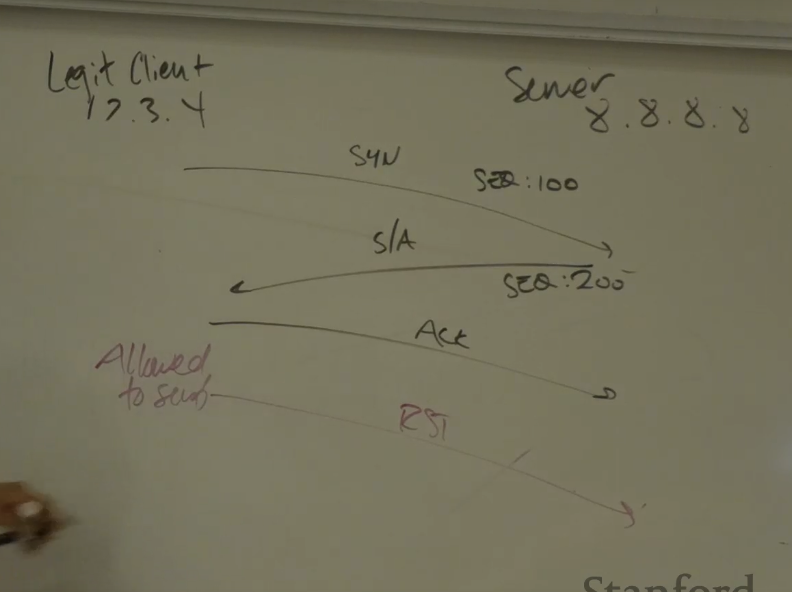 Legit Client
1 2.3.4
Server
8.8.8.8
SYN
SEQ:100
S/A
SEQ:200
Ack
Allowed
to send
RST
Stanford